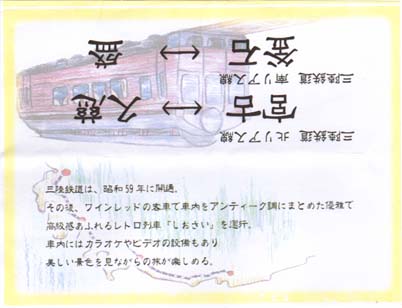 三陸鉄道 北リアス線
宮古 ↔ 久慈
三陸鉄道 南リアス線
釜石 ↔ 盛
三陸鉄道は、昭和59年に開通。
その後、ワインレッドの客車で車内をアンティーク調にまとめた優雅で
高級感あふれるレトロ列車「しおさい」を運行。
車内にはカラオケやビデオの設備もあり
美しい景色を見ながらの旅が楽しめる。